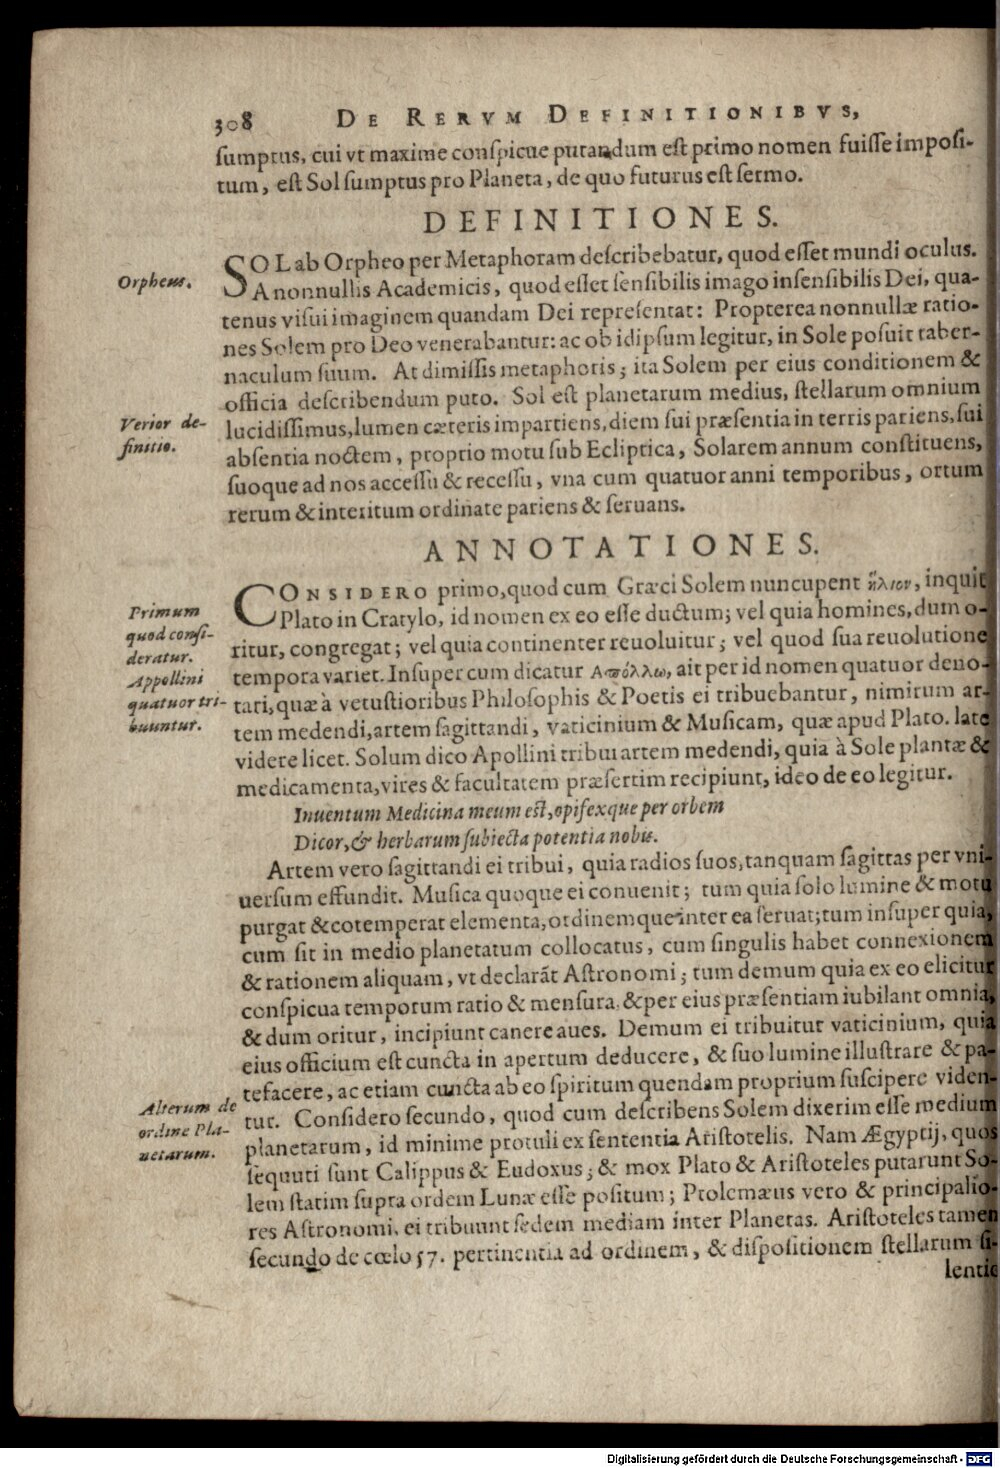 308 DE RERVM DEFINITIONIBVS,
sumptus, cui vt maxime conspicue putandum est primo nomen fuisse imposi-
tum, est Sol sumptus pro Planeta, de quo futurus est sermo.
DEFINITIONES.
SOL ab Orpheo per Metaphoram describebatur, quod esset mundi oculus.
Orpheus.
A nonnullis Academicis, quod esset sensibilis imago insensibilis Dei, qua-
tenus visui imaginem quandam Dei representat: Propterea nonnullæ ratio-
nes Solem pro Deo venerabantur: ac ob idipsum legitur, in Sole posuit taber-
naculum suum. At dimissis metaphoris; ita Solem per eius conditionem &
officia describendum puto. Sol est planetarum medius, stellarum omnium
Verior de-
finitio.
lucidissimus, lumen cæteris impartiens, diem sui præsentia in terris pariens, sui
absentia noctem, proprio motu sub Ecliptica, Solarem annum constituens,
suoque ad nos accessu & recessu, vna cum quatuor anni temporibus, ortum
rerum & interitum ordinate pariens & seruans.
ANNOTATIONES.
CONSIDERO primo, quod cum Græci Solem nuncupent ἥλιον, inquit
Primum
quod consi-
deratur.
Appollini
quatuor tri-
buuntur.
Plato in Cratylo, id nomen ex eo esse ductum; vel quia homines, dum o-
ritur, congregat; vel quia continenter reuoluitur; vel quod sua reuolutione
tempora variet. Insuper cum dicatur Απόλλω, ait per id nomen quatuor deno-
tari, quæ à vetustioribus Philosophis & Poetis ei tribuebantur, nimirum ar-
tem medendi, artem sagittandi, vaticinium & Musicam, quæ apud Plato. late
videre licet. Solum dico Apollini tribui artem medendi, quia à Sole plantæ &
medicamenta, vires & facultatem præsertim recipiunt, ideo de eo legitur.
Inuentum Medicina meum est, opifexque per orbem
Dicor, & herbarum subiecta potentia nobis.
Artem vero sagittandi ei tribui, quia radios suos, tanquam sagittas per vni-
uersum effundit. Musica quoque ei conuenit; tum quia solo lumine & motu
purgat & cotemperat elementa, ordinemque inter ea seruat; tum insuper quia,
cum sit in medio planetatum collocatus, cum singulis habet connexionem
& rationem aliquam, vt declarãt Astronomi; tum demum quia ex eo elicitur
conspicua temporum ratio & mensura, & per eius præsentiam iubilant omnia,
& dum oritur, incipiunt canere aues. Demum ei tribuitur vaticinium, quia
eius officium est cuncta in apertum deducere, & suo lumine illustrare & pa-
tefacere, ac etiam cuncta ab eo spiritum quendam proprium suscipere viden-
Alterum de
ordine Pla-
netarum.
tur. Considero secundo, quod cum describens Solem dixerim esse medium
planetarum, id minime protuli ex sententia Aristotelis. Nam Ægyptij, quos
sequuti sunt Calippus & Eudoxus; & mox Plato & Aristoteles putarunt So-
lem statim supra ordem Lunæ esse positum; Ptolemæus vero & principalio-
res Astronomi, ei tribuunt sedem mediam inter Planetas. Aristoteles tamen
secundo de cœlo 57. pertinentia ad ordinem, & dispositionem stellarum si-
lentio
Digitalisierung gefördert durch die Deutsche Forschungsgemeinschaft - DFG